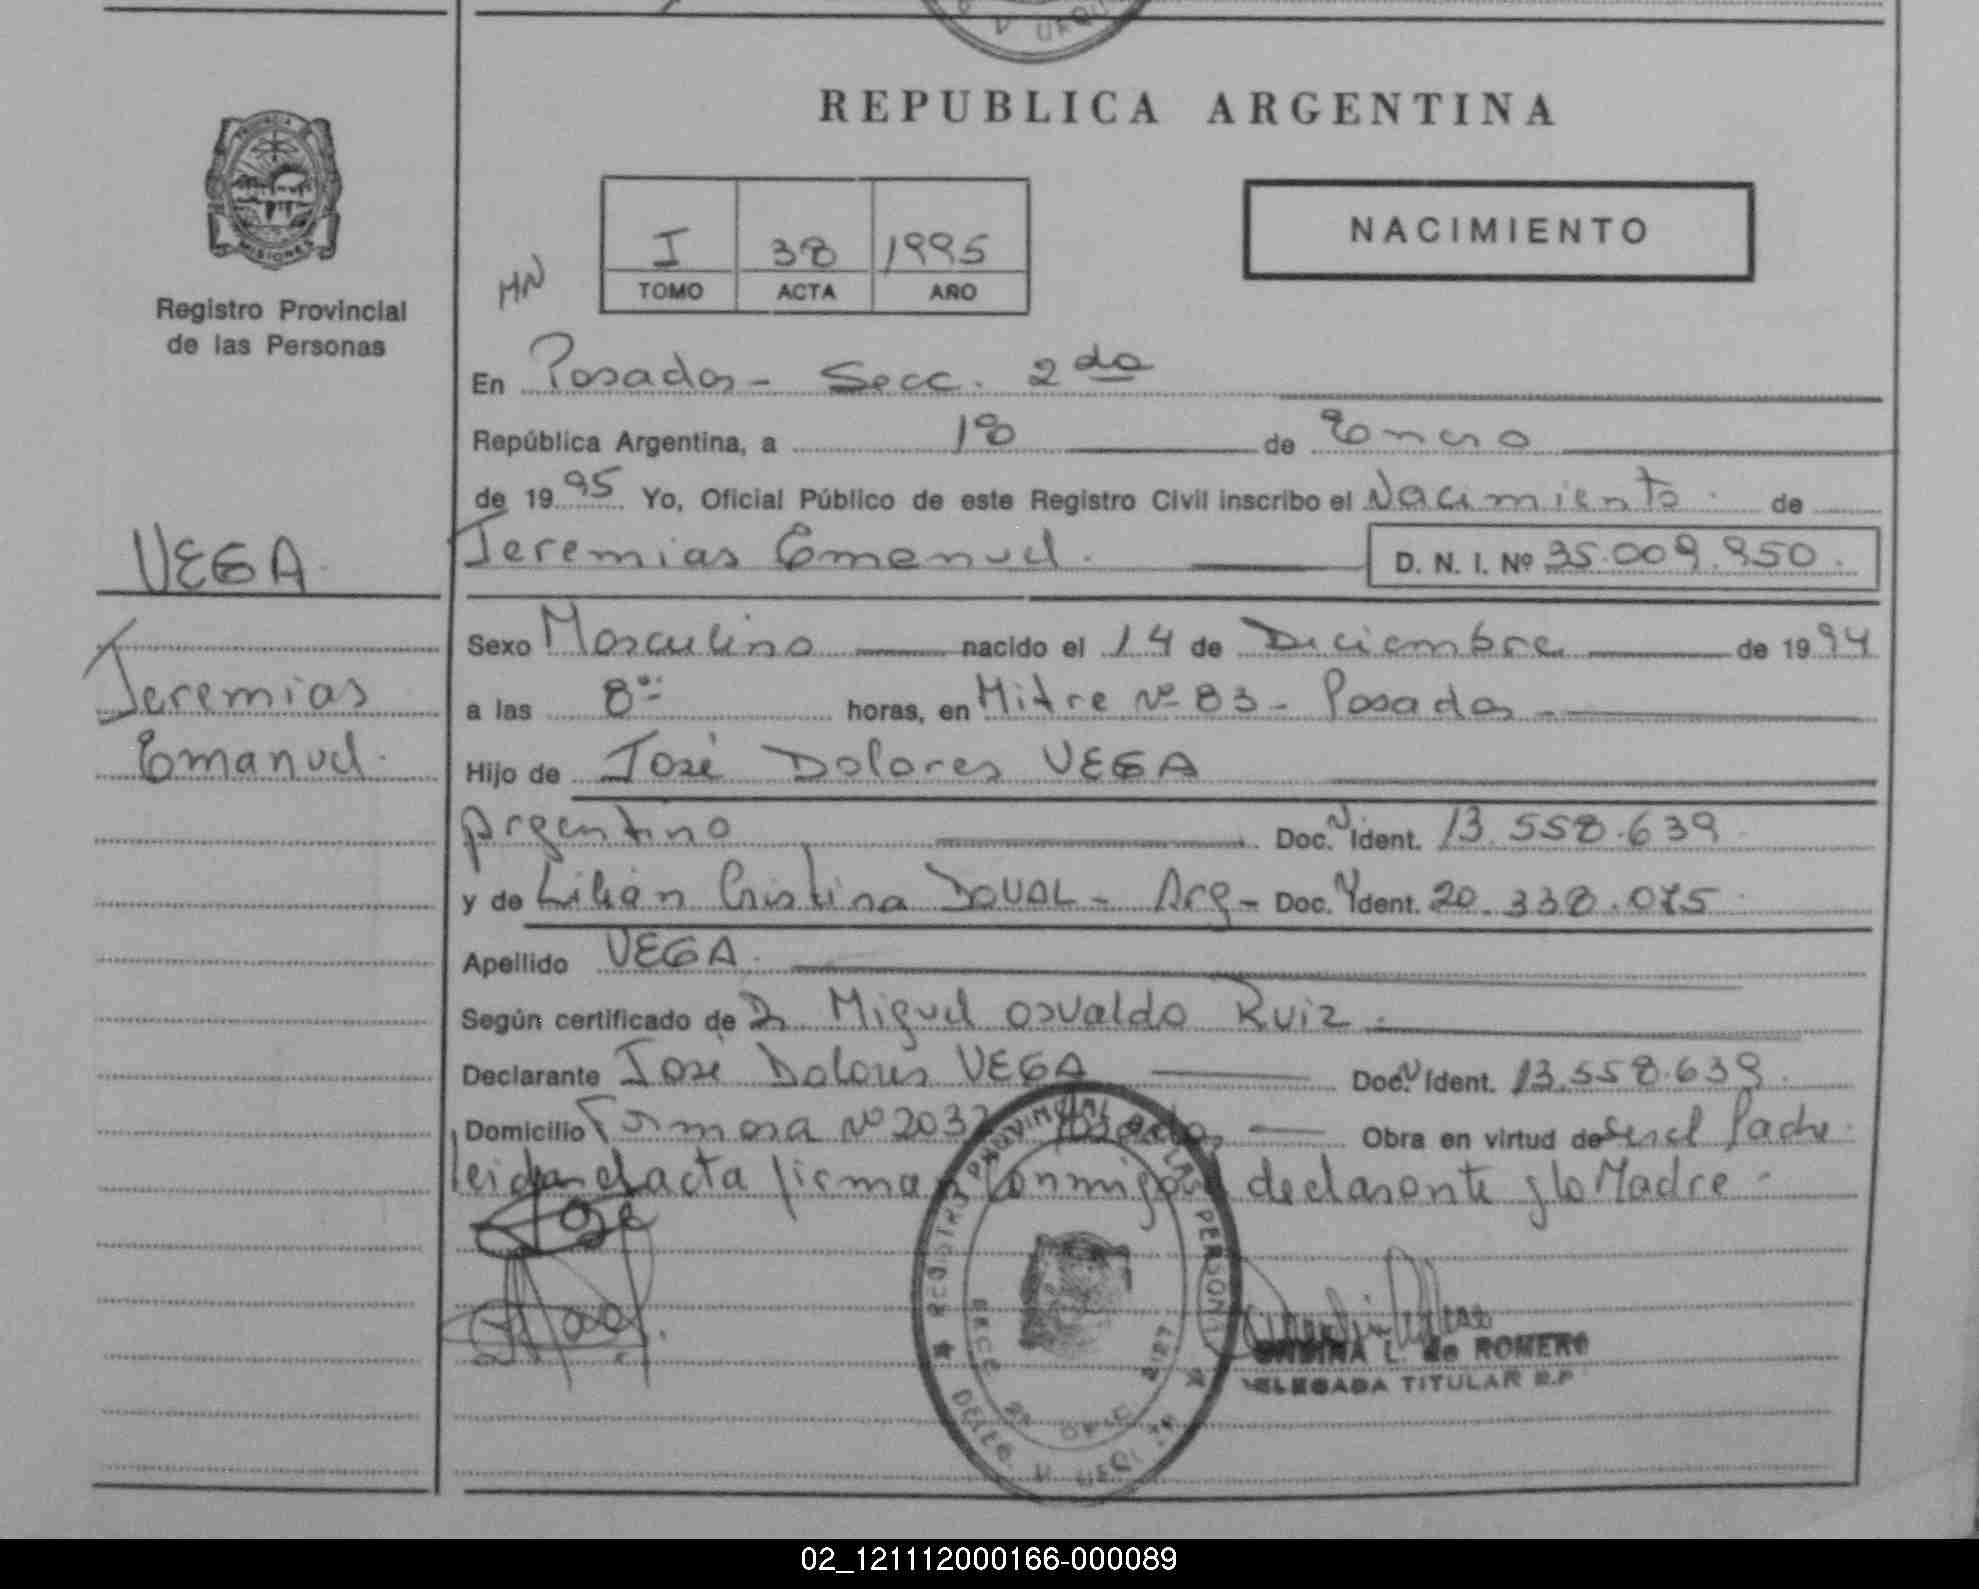 REPUBLICA ARGENTINA
PROVINCIA DE
MISIONES
Registro Provincial
de las Personas
NACIMIENTO
I 38 1995
TOMO ACTA AÑO
HN
En Posadas - Secc. 2da
República Argentina, a 18 de Enero
de 1995 Yo, Oficial Público de este Registro Civil inscribo el Nacimiento de
VEGA
Jeremias Emanuel. D. N. I. Nº 35.009.950.
Sexo Masculino nacido el 14 de Diciembre de 1994
Jeremias
a las 8 horas, en Mitre Nº 83 - Posadas
Emanuel.
Hijo de José Dolores VEGA
Argentino Doc. N Ident. 13.558.639
y de Lilian Cristina DUVAL - Arg - Doc. N Ident. 20.338.075
Apellido VEGA.
Según certificado de Dr. Miguel Osvaldo Ruiz.
Declarante José Dolores VEGA Doc. N Ident. 13.558.639.
Domicilio Formosa Nº 203 Posadas, Obra en virtud de ser el Padre.
leida el acta firman conmigo declarante y la Madre.
REGISTRO PROVINCIAL DE LAS PERSONAS
L. de ROMERO
DELEGADA TITULAR R.P
02_121112000166-000089